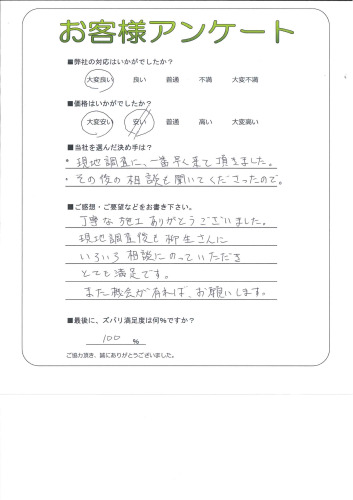 お客様アンケート
■弊社の対応はいかがでしたか？
大変良い 良い 普通 不満 大変不満
■価格はいかがでしたか？
大変安い 安い 普通 高い 大変高い
■当社を選んだ決め手は？
・現地調査に、一番早く来て頂きました。
・その後の相談も聞いてくださったので。
■ご感想・ご要望などをお書き下さい。
丁寧な施工ありがとうございました。
現地調査後も柳生さんに
いろいろ相談にのっていただき
とても満足です。
また機会が有れば、お願いします。
■最後に、ズバリ満足度は何％ですか？
100 %
ご協力頂き、誠にありがとうございました。